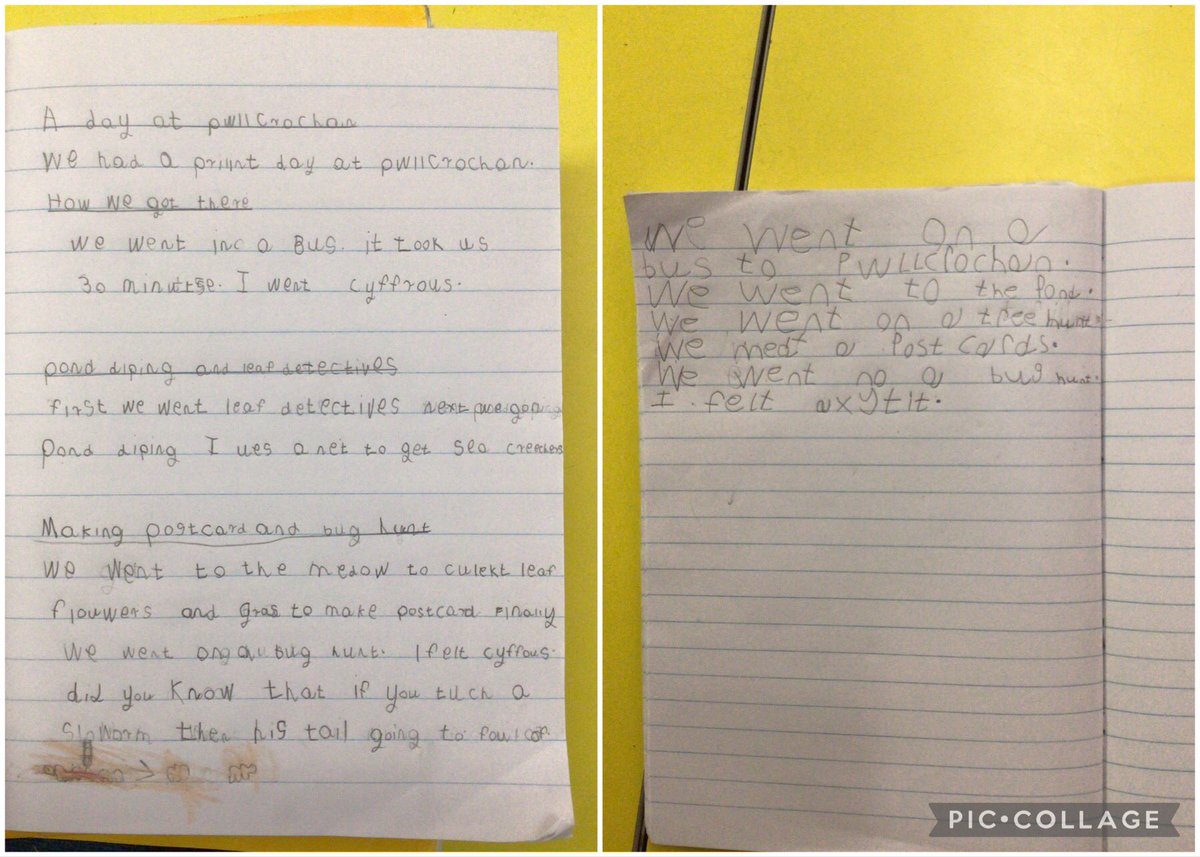 A day at pwllcrochan
We had a priiint day at pwllcrochan.
How we got there
We went in a Bus. it took us
30 minutse. I went cyffrous.
pond diping and leaf detectives
first we went leaf detectives next
Pond diping I ues a net to get sea creechers
Making postcard and bug hunt
We went to the medow to culekt leaf
flouwers and gras to make postcard Finally
We went on a bug hunt. I felt cyffous.
did you know that if you tuch a
Sloworm then his tail going to foul of
We went on a
bus to PWLLCrochan.
We went to the Pond.
We went on a tree hunt.
We medt a Post cards.
We went no a bug hunt.
I felt axytlt.
PIC•COLLAGE